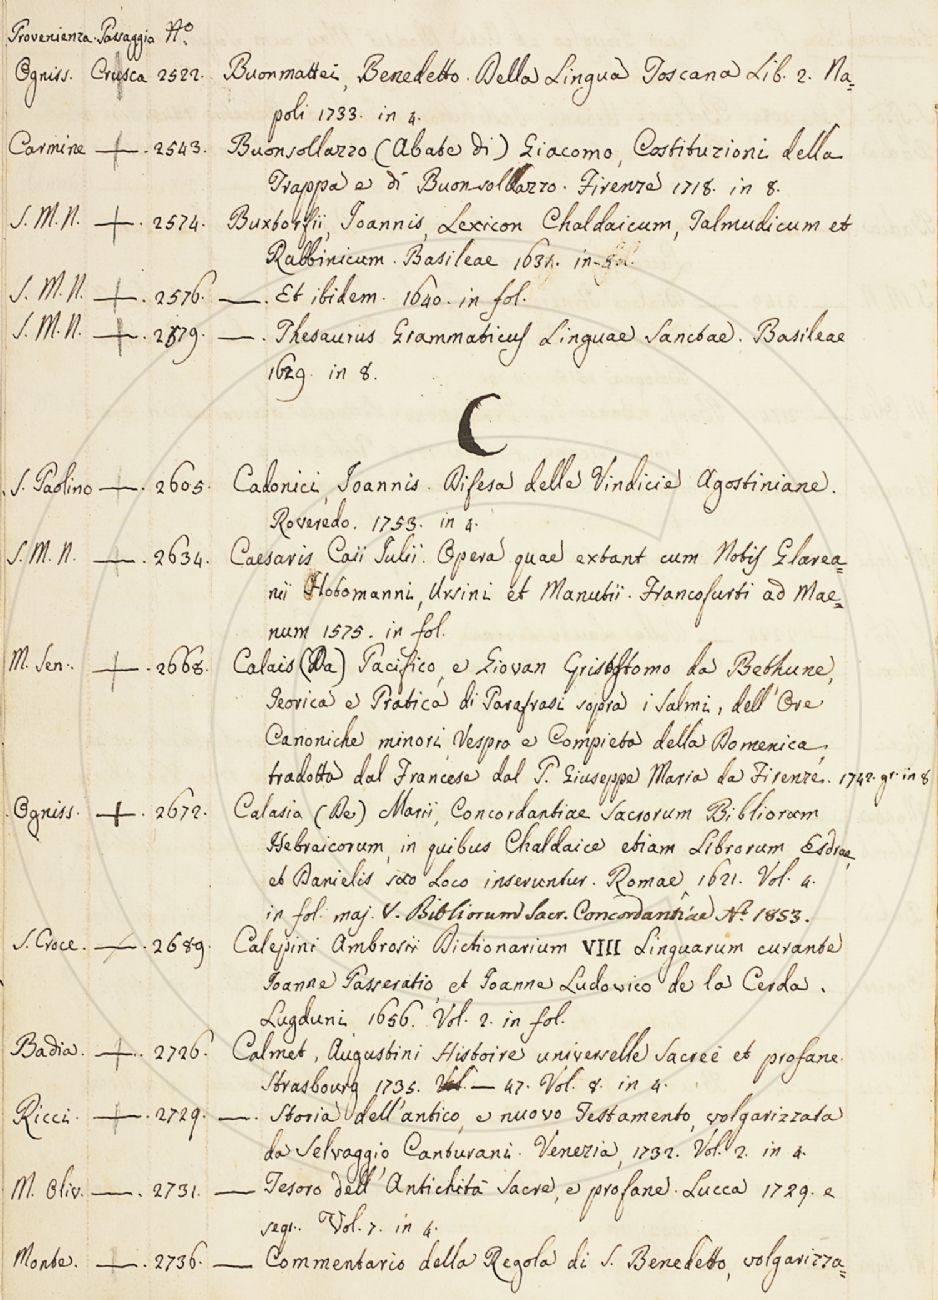 Provenienza. Passaggio Nº.
Ogniss. Crusca 2522. Buonmattei, Benedetto. Della Lingua Toscana Lib. 2. Na=
poli 1733. in 4.
Carmine + . 2543. Buonsollazzo (Abate di) Giacomo, Costituzioni della
Trappa e di Buonsollazzo. Firenze 1718. in 8.
S. M. N. + . 2574. Buxtorfii, Joannis, Lexicon Chaldaicum, Talmudicum et
Rabbinicum. Basileae in fol.
S. M. N. + . 2576. —. Et ibidem. 1640. in fol.
S. M. N. + . 2579. —. Thesaurus Grammaticus Linguae Sanctae. Basileae
1629. in 8.
C
S. Paolino —. 2605. Cadonici, Joannis. Difesa delle Vindicie Agostiniane.
Roveredo. 1753. in 4.
S. M. N. —. 2634. Caesaris Caii Julii. Opera quae extant cum Notis Glarea=
nii Hotomanni, Ursini et Manutii. Francofurti ad Mae=
num 1575. in fol.
M. Sen. + . 2668. Calais (Da) Pacifico, e Giovan Grisostomo da Bethune,
Teorica e Pratica di Parafrasi sopra i Salmi, dell' Ore
Canoniche minori, Vespro e Compieta della Domenica,
tradotta dal Francese dal P. Giuseppe Maria da Firenze. 1742. gr. in 8
Ogniss. + . 2672. Calasia (De) Marii, Concordantiae Sacrorum Bibliorum
Hebraicorum, in quibus Chaldaice etiam Librorum Esdrae,
et Danielis suo Loco inseruntur. Romae, 1621. Vol. 4.
in fol. maj. V. Bibliorum Sacr. Concordantiae Nº. 1853.
S. Croce. —. 2689. Calepini Ambrosii Dictionarium VIII Linguarum curante
Joanne Passeratio, et Joanne Ludovico de la Cerda.
Lugduni, 1656. Vol. 2. in fol.
Badia. + . 2726. Calmet, Augustini Histoire universelle Sacreè et profane.
Strasbourg 1735. — 47. Vol. 8. in 4.
Ricci + . 2729. —. Storia dell' antico, e nuovo Testamento, volgarizzata
da Selvaggio Canturani. Venezia, 1732. Vol. 2. in 4.
M. Oliv. —. 2731. — Tesoro dell' Antichità Sacre, e profane. Lucca 1729. e
segg. Vol. 7. in 4.
Monte. + . 2736. — Commentario della Regola di S. Benedetto, volgarizza=